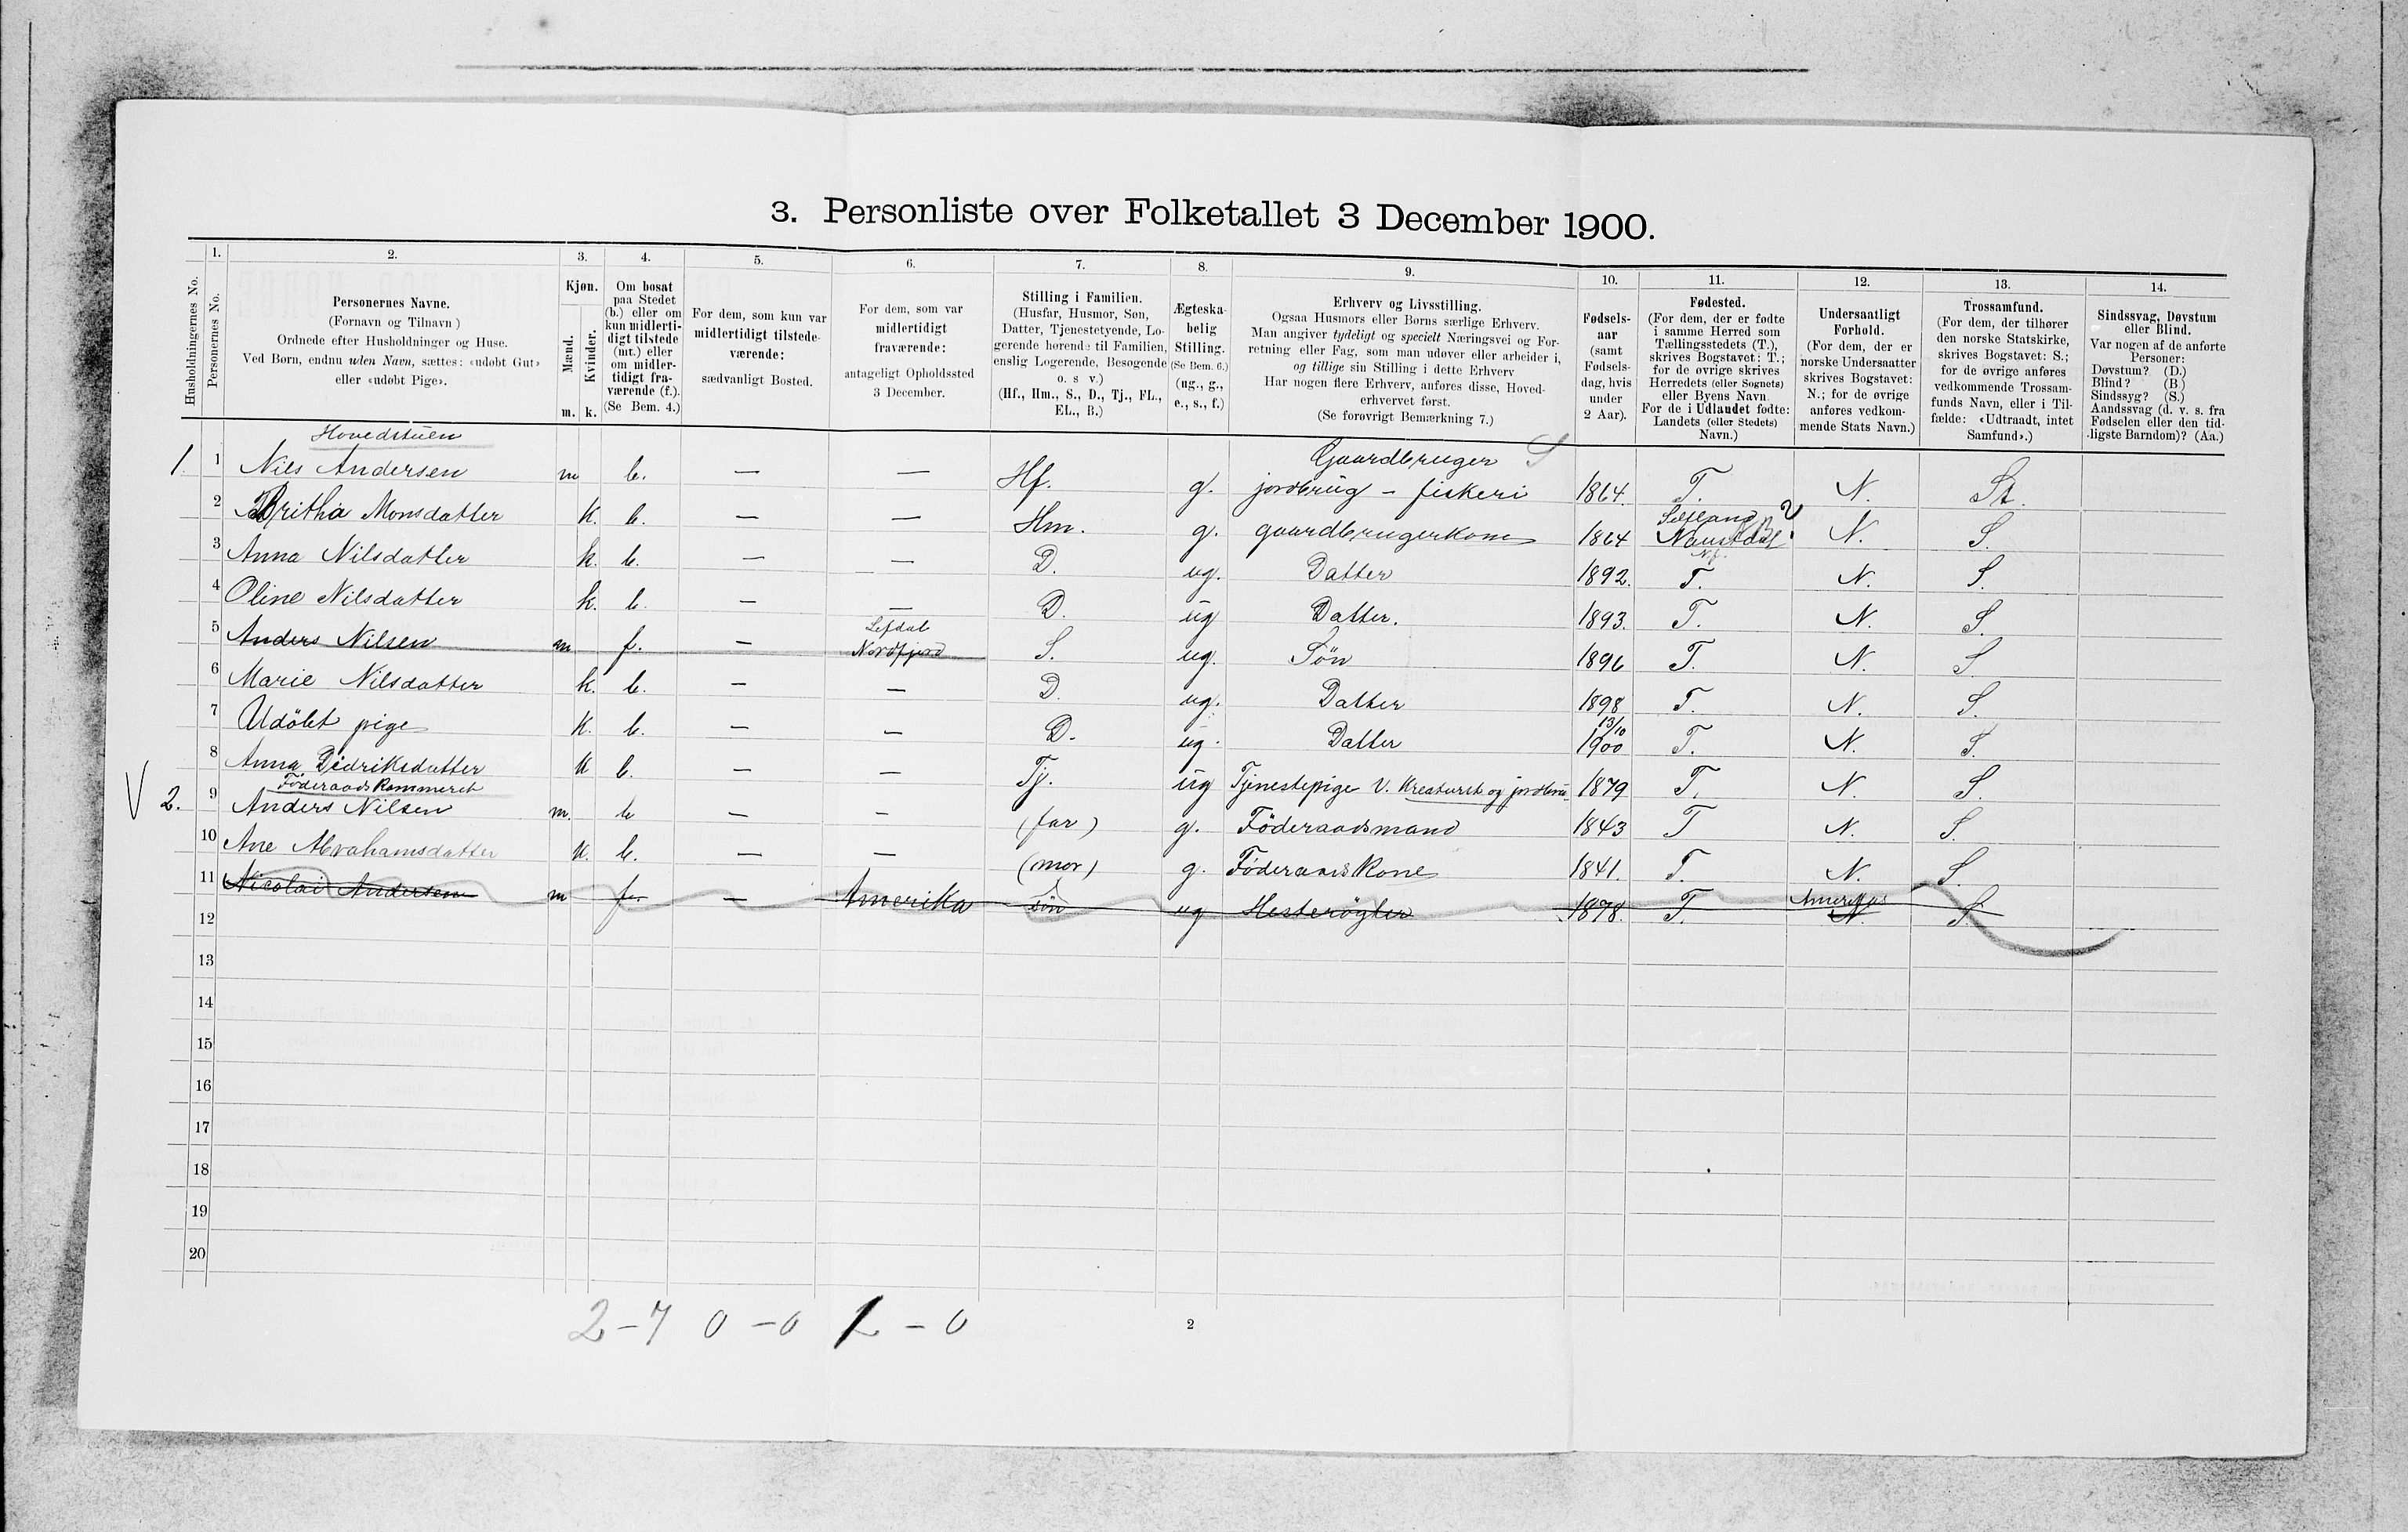 3. Personliste over Folketallet 3 December 1900.
Husholdningernes No.
1. Personernes No.
2. Personernes Navne.
(Fornavn og Tilnavn )
Ordnede efter Husholdninger og Huse.
Ved Børn, endnu uden Navn, sættes: «udøbt Gut»
eller «udøbt Pige».
3. Kjøn.
Mænd. m.
Kvinder. k.
4. Om bosat
paa Stedet
(b.) eller om
kun midlerti-
digt tilstede
(mt.) eller
om midler-
tidigt fra-
værende (f.).
(Se Bem. 4.)
5. For dem, som kun var
midlertidigt tilstede-
værende:
sædvanligt Bosted.
6. For dem, som var
midlertidigt
fraværende:
antageligt Opholdssted
3 December.
7. Stilling i Familien.
(Husfar, Husmor, Søn,
Datter, Tjenestetyende, Lo-
gerende hørende til Familien,
enslig Logerende, Besøgende
o. s v.)
(Hf., Hm., S., D., Tj., FL.,
EL., B.)
8. Ægteska-
belig
Stilling.
(Se Bem. 6.)
(ug., g.,
e., s., f.)
9. Erhverv og Livsstilling.
Ogsaa Husmors eller Børns særlige Erhverv.
Man angiver tydeligt og specielt Næringsvei og For-
retning eller Fag, som man udøver eller arbeider i,
og tillige sin Stilling i dette Erhverv
Har nogen flere Erhverv, anføres disse, Hoved-
erhvervet først.
(Se forøvrigt Bemærkning 7.)
10. Fødsels-
aar
(samt
Fødsels-
dag, hvis
under
2 Aar).
11. Fødested.
(For dem, der er fødte
i samme Herred som
Tællingsstedets (T.),
skrives Bogstavet: T.;
for de øvrige skrives
Herredets (eller Sognets)
eller Byens Navn
For de i Udlandet fødte:
Landets (eller Stedets)
Navn.)
12. Undersaatligt
Forhold.
(For dem, der er
norske Undersaatter
skrives Bogstavet:
N.; for de øvrige
anføres vedkom-
mende Stats Navn.)
13. Trossamfund.
(For dem, der tilhører
den norske Statskirke,
skrives Bogstavet: S.;
for de øvrige anføres
vedkommende Trossam-
funds Navn, eller i Til-
fælde: «Udtraadt, intet
Samfund».)
14. Sindssvag, Døvstum
eller Blind.
Var nogen af de anførte
Personer:
Døvstum? (D.)
Blind? (B.)
Sindssyg? (S.)
Aandssvag (d. v. s. fra
Fødselen eller den tid-
ligste Barndom)? (Aa.)
Hovedstuen
Gaardbruger S
1. 1 Nils Andersen m b. — — Hf. g. jordbrug - fiskeri 1864 T. N. St.
Selfland
2 Britha Monsdatter K. b. — — Hm. g. gaardbrugerkone 1864 Naustdal N. S.
3 Anna Nilsdatter k. b. — — D. ug. Datter 1892. T. N. S.
4 Oline Nilsdatter k. b. — — D. ug Datter. 1893. T. N. S.
Lefdal
5 Anders Nilsen m f. — Nordfjord S. ug. Sön 1896 T. N. S.
6 Marie Nilsdatter k. b. — — D. ug. Datter 1898 T. N. S.
13/10
7 Udöbt pige K. b. — — D. ug. Datter 1900 T. N. S.
8 Anna Didriksdatter K b. — — Tj. ug Tjenestepige V. Kreaturst og jordbru. 1879 T. N. S.
Föderaads Kammeret
V 2. 9 Anders Nilsen m. b — — (far) g. Föderaadsmand 1843 T N. S.
10 Ane Abrahamsdatter K. b. — — (mor) g. Föderaads Kone 1841. T. N. S.
Amerikas
11 Nicolai Andersen m f. — Amerika sön ug Hesterögter 1878. T. N. S.
12
13
14
15
16
17
18
19
20
2 - 7 0 - 0 1 - 0
2